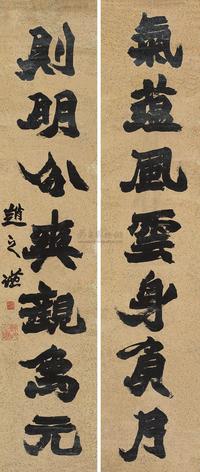 氣蒀風雲身負月
則明分爽觀為元
趙之謙